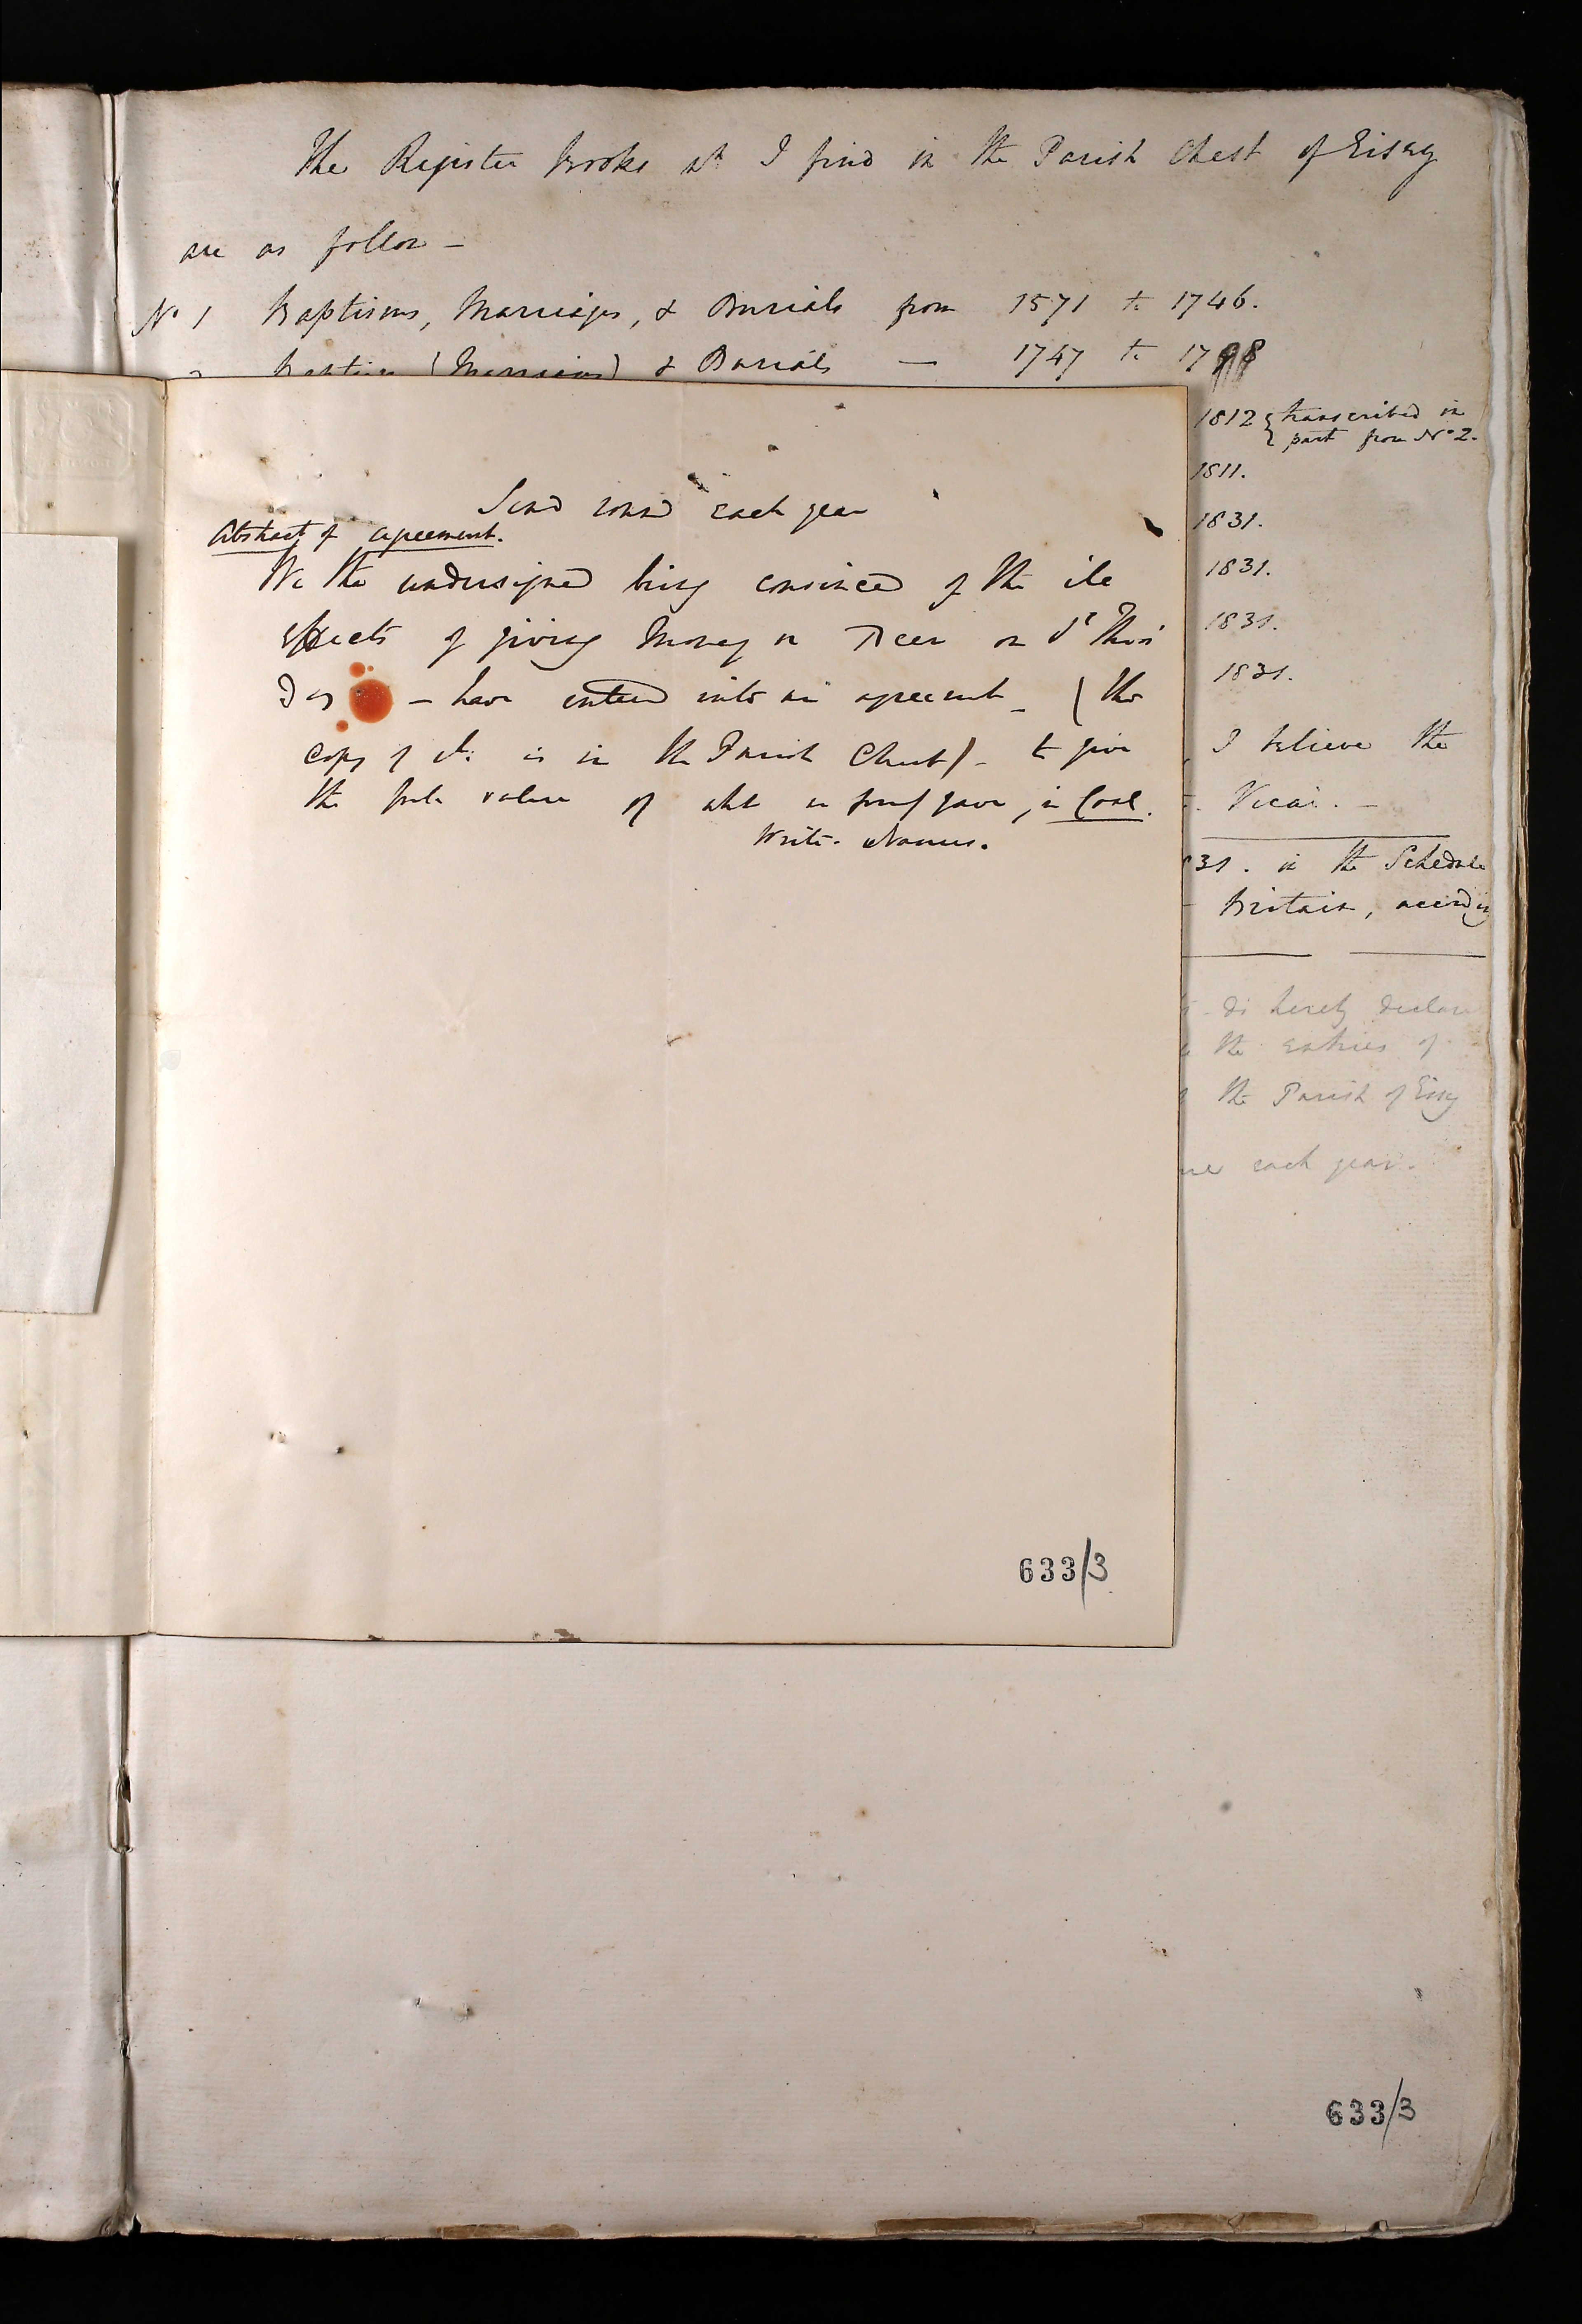 The Register Books wh I find in the Parish Chest of Eisey
are as follow –
No 1 Baptisms, Marriages, & Burials from 1571 to 1746.
Baptism (Marriages) & Burials — 1747 to 1798
1812 { transcribed in
part from No 2.
1811.
1831.
1831.
1831.
1831.
I believe the
Vicar. –
831. in the Schedule
Britain, according
do hereby declare
the entries of
the Parish of Eisey
each year.
Send round each year
Abstract of agreement.
We the undersigned being convinced of the ile
effects of giving Money or Beer on St Thos
Day – have entered into an agreement – (the
copy of it is in the Parish Chest) – to give
the full value of wht we forml gave, in Coal.
Write Names.
633/3
633/3